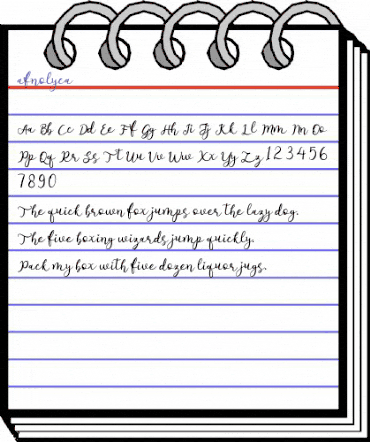 afnolyca
Aa Bb Cc Dd Ee Ff Gg Hh Ii Jj Kk Ll Mm Nn Oo
Pp Qq Rr Ss Tt Uu Vv Ww Xx Yy Zz 1 2 3 4 5 6
7 8 9 0
The quick brown fox jumps over the lazy dog.
The five boxing wizards jump quickly.
Pack my box with five dozen liquor jugs.